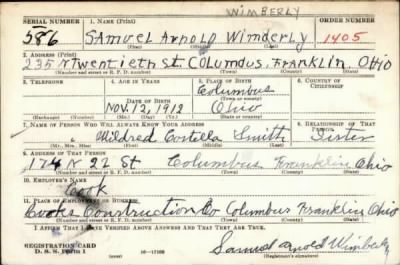 WIMBERLY
SERIAL NUMBER 1. NAME (Print) ORDER NUMBER
586 SAmuel Arnold Wimderly 1405
(First) (Middle) (Last)
2. ADDRESS (Print)
235 N Twentieth St. COLUMBUS, FRANKLIN, OHIO
(Number and street or R. F. D. number) (Town) (County) (State)
3. TELEPHONE 4. AGE IN YEARS 5. PLACE OF BIRTH 6. COUNTRY OF CITIZENSHIP
Columbus
(Town or county)
DATE OF BIRTH
NOV. 12, 1912 Ohio
(Exchange) (No.) (Mo.) (Day) (Yr.) (State or country)
7. NAME OF PERSON WHO WILL ALWAYS KNOW YOUR ADDRESS 8. RELATIONSHIP OF THAT PERSON
Mildred Costella Smith Sister
(Mr., Mrs., Miss) (First) (Middle) (Last)
9. ADDRESS OF THAT PERSON
174 N 22 St Columbus Franklin Ohio
(Number and street or R. F. D. number) (Town) (County) (State)
10. EMPLOYER'S NAME
Cook
11. PLACE OF EMPLOYMENT OR BUSINESS
Cooks Construction Co Columbus Franklin Ohio
(Number and street or R. F. D. number) (Town) (County) (State)
I AFFIRM THAT I HAVE VERIFIED ABOVE ANSWERS AND THAT THEY ARE TRUE.
REGISTRATION CARD
D. S. S. Form 1 Samuel Arnold Wimberly
(Registrant's signature)